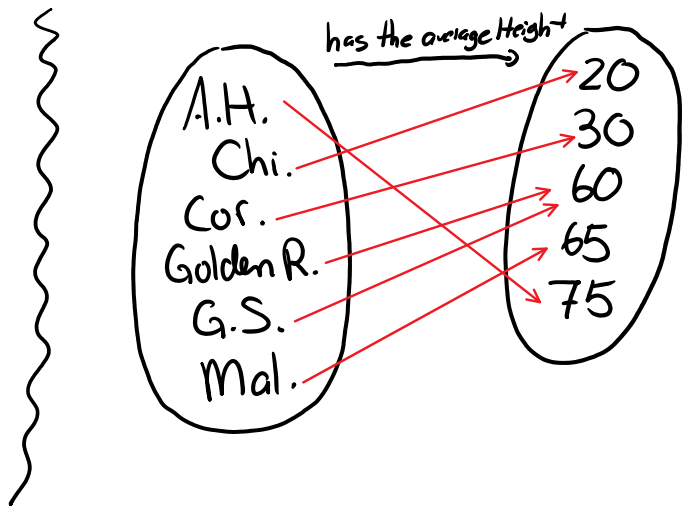 has the average Height
A.H.
Chi.
Cor.
Golden R.
G.S.
Mal.
20
30
60
65
75